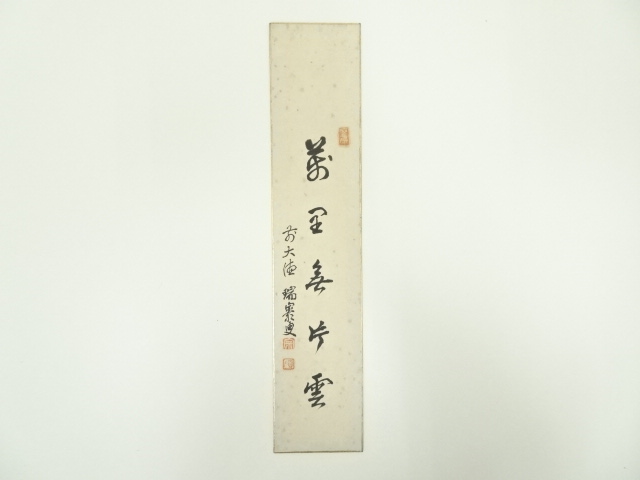 萬里無片雲
前大徳 瑞巖叟